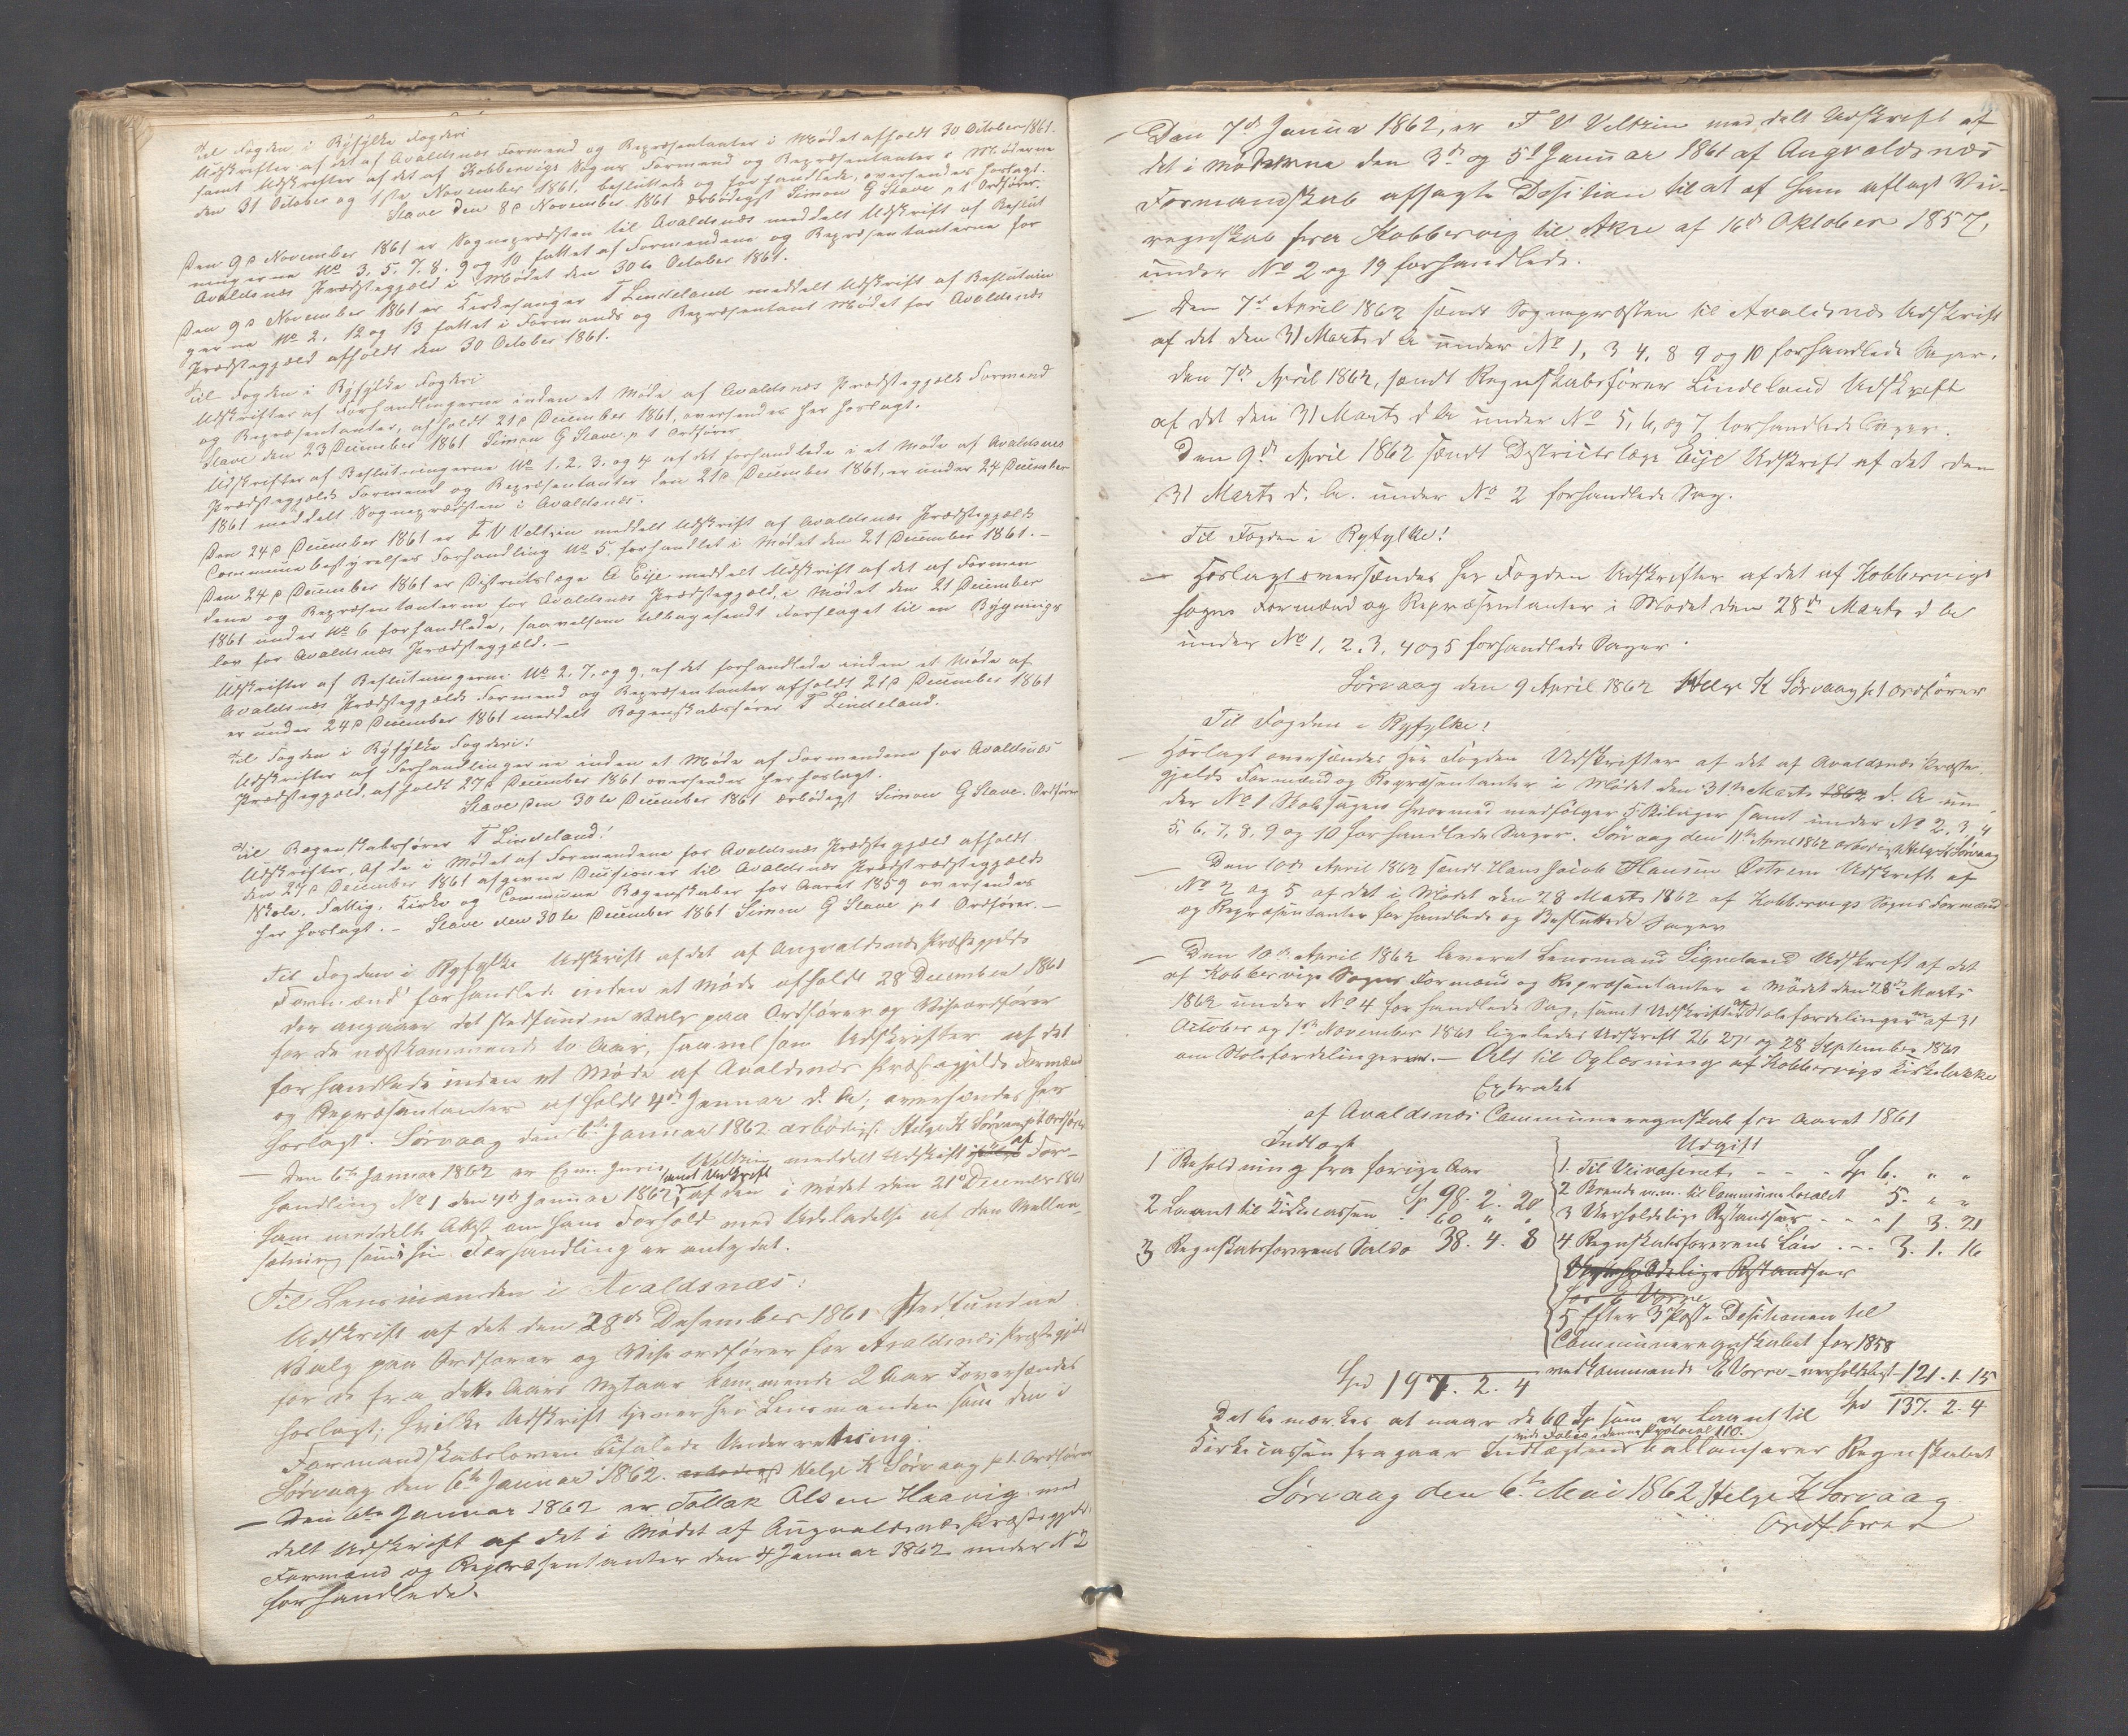 Til Fogden i Ryfylke Fogderi
Udskrifter af det af Avaldsnæs Formænd og Repræsentanter i Mødet afholdt 30 October 1861.
samt Udskrifter af det af Kobbervigs Sogns Formænd og Repræsentanter i Møderne
den 31 October og 1ste November 1861, besluttede og forhandlede, oversendes hoslagt.
Stave den 8de November 1861 Ærbødigst Simon G Stave p t Ordfører.
Den 9de November 1861 er Sognepræsten til Avaldsnæs meddelt Udskrift af Beslut
ningerne No 3. 5. 7. 8. 9 og 10 fattet af Formændene og Repræsentanterne for
Avaldsnæs Præstegjæld i Mødet den 30te October 1861.
Den 9de November 1861 er Kirkesanger T Lindeland meddelt Udskrift af Beslutnin
gerne No 2, 12 og 13 fattet i Formænds og Repræsentant Mødet for Avaldsnæs
Præstegjæld afholdt den 30 October 1861.
Til Fogden i Ryfylke Fogderi
Udskrifter af Forhandlingerne inden et Møde af Avaldsnæs Præstegjælds Formænd
og Repræsentanter, afholdt 21de December 1861, oversendes her hoslagt.
Stave den 23 December 1861 Simon G Stave p t Ordfører
Udskrifter af Beslutningerne No 1. 2. 3. og 4 af det forhandlede i et Møde af Avaldsnes
Præstegjælds Formænd og Repræsentanter den 21de December 1861, er under 24 December
1861 meddelt Sognepræsten i Avaldsnæs.
Den 24de December 1861 er T V Veltzin meddelt Udskrift af Avaldsnæs Præstegjælds
Communebestyrelses Forhandling No 5. forhandlet i Mødet den 21 December 1861. -
Den 24de December 1861 er Districtslæge A Eije meddelt Udskrift af det af Formæn
dene og Repræsentanterne for Avaldsnæs Præstegjæld, i Mødet den 21 December
1861 under No 6 forhandlede, saavelsom tilbagesendt Forslaget til en Bygnings
lov for Avaldsnæs Præstegjæld. -
Udskrifter af Beslutningerne No 2, 7, og 9, af det forhandlede inden et Møde af
Avaldsnæs Præstegjælds Formænd og Repræsentanter afholdt 21de December 1861
er under 24de December 1861 meddelt Regnskabsfører T Lindeland.
Til Fogden i Ryfylke Fogderi!
Udskrifter af Forhandlingerne inden et Møde af Formændene for Avaldsnæs
Præstegjæld, afholdt 27de December 1861 oversendes her hoslagt.
Stave den 30te December 1861 Ærbødigst Simon G Stave. Ordfører
Til Regnskabsfører T Lindeland!
Udskrifter, af de i Mødet af Formændene for Avaldsnæs Præstegjæld afholdt
den 27de December 1861 afgivne Decisioner til Avaldsnæs Præstegjælds
Skole, Fattig, Kirke og Commune Regnskaber for Aaret 1859 oversendes
her hoslagt. - Stave den 30te December 1861 Simon G Stave p t Ordfører. -
Til Fogden i Ryfylke Udskrift af det af Augvaldsnæs Præstegjelds
Formænd forhandlede inden et Møde afholdt 28 December 1861
der angaaer det stedfundne Valg paa Ordfører og Viseordfører
for de næstkommende to Aar, saavelsom Udskrifter af det
forhandlede inden et Møde af Avaldsnæs Præstegjelds Formænd
og Repræsentanter afholdt 4de Januar d. A; oversendes her
hoslagt. Sørvaag den 6te Januar 1862 ærbødigst Helge K Sørvaag p t Ordfører
- Den 6te Januar 1862 er Veltzin meddelt Udskrift af For-
handling No 1 den 4de Januar 1862, samt Udskrift af den i Mødet den 21de December 1861
ham meddelte Attest om hans Forhold med Udeladelse af den Mellem
sætning som i Forhandling er antydet.
Til Lensmanden i Avaldsnæs:
Udskrift af det den 28de Desember 1861 stedfundne
Valg paa Ordfører og Viseordfører for Avaldsnæs Præstegjeld
for de fra dette Aars Nytaar kommende 2 Aar oversendes
hoslagt; hvilke Udskrift tjener Hr Lensmanden som den i
Formandskabsloven befalede Underretning.
Sørvaag den 6te Januar 1862. Helge K Sørvaag p t Ordfører
- Den 6te Januar 1862 er Tollak Olsen Haavig med
delt Udskrift af det i Mødet af Augvaldsnæs Præstegjelds
Formænd og Repræsentanter den 4 Januar 1862 under N 2
forhandlede.
- Den 7de Januar 1862, er T V Veltzin meddelt Udskrift af
det i Møderne den 3de og 5te Januar 1861 af Augvaldsnæs
Formandskab afsagte Desition til at af ham aflagt Vei-
regnskab fra Kobbervig til Akre af 16de Oktober 1857,
under No 2 og 19 forhandlede.
- Den 7de April 1862 sendt Sognepræsten til Avaldsnæs Udskrift
af det den 31 Marts d A under No 1, 3 4, 8 9 og 10 forhandlede Sager.
Den 7de April 1862, sendt Regnskabsfører Lindeland Udskrift
af det den 31 Marts d A under No 5, 6, og 7 forhandlede Sager.
Den 9de April 1862 sendt Destrictslæge Eije Udskrift af det den
31 Marts d. A. under No 2 forhandlede Sag.
Til Fogden i Ryfylke!
- Hoslagt oversendes Hr Fogden Udskrifter af det af Kobbervigs
Sogns Formænd og Repræsentanter i Mødet den 28de Marts d A
under No 1, 2, 3, 4 og 5 forhandlede Sager.
Sørvaag den 9 April 1862 Helge K Sørvaag p t Ordfører
Til Fogden i Ryfylke!
- Hoslagt oversendes Hr Fogden Udskrifter af det af Avaldsnæs Præste
gjelds Formænd og Repræsentanter i Mødet den 31te Marts 1862 d. A un
der No 1 Skolsagen hvormed medfølger 5 Bilager samt under No 2, 3, 4
5, 6, 7, 8, 9 og 10 forhandlede Sager. Sørvaag den 11te April 1862 ærbødigst Helge K Sørvaag
- Den 10de April 1862 sendt Hans Jacob Hansen Østrem Udskrift af
No 2 og 5 af det i Mødet den 28 Marts 1862 af Kobbervigs Sogns Formænd
og Repræsentanter forhandlede og Besluttede Sager
- Den 10de April 1862 leveret Lensmand Signeland Udskrift af det
af Kobbervigs Sogns Formænd og Repræsentanter i Mødet den 28de Marts
1862 under No 4 forhandlede Sag, samt Udskrifter af Stolefordelingen af 31
October og 1ste November 1861 ligeledes Udskrift 26 27de og 28 September 1861
om Stolefordelingerne. - Alt til Oplæsning af Kobbervigs Kirkebakke
Extrakt
af Avaldsnæs Communeregnskab for Aaret 1861
Indtægt
1 Beholdning fra forige Aar Sp 98. 2. 20
2 Laant til Kirkecassen . . 60 " "
3 Regnskabsførerens Saldo 38. 4. 8
Spd 197. 2. 4
Udgift
1. Til Veivæsenet, - - - Sp 6. " "
2 Brende m.m. til Communelocalet 5. " "
3 Uerholdelige Restandser - - - 1 3. 21
4 Regnskabsførerens Løn . - . 3. 1. 16
Uerholdelige Restandser
for E Vorre
5 Efter 3de Post i Desitionen til
Communeregnskabet for 1858
vedkommende E Vorre uerholdeligt - 121. 1. 15
Spd 137. 2. 4
Det bemærkes at naar de 60 Sp som er laant til
vide Folio i denne Protocol 110.
Kirkecassen fragaar Indtægten ballanserer Regnskabet
Sørvaag den 6te Mai 1862 Helge K Sørvaag
Ordfører